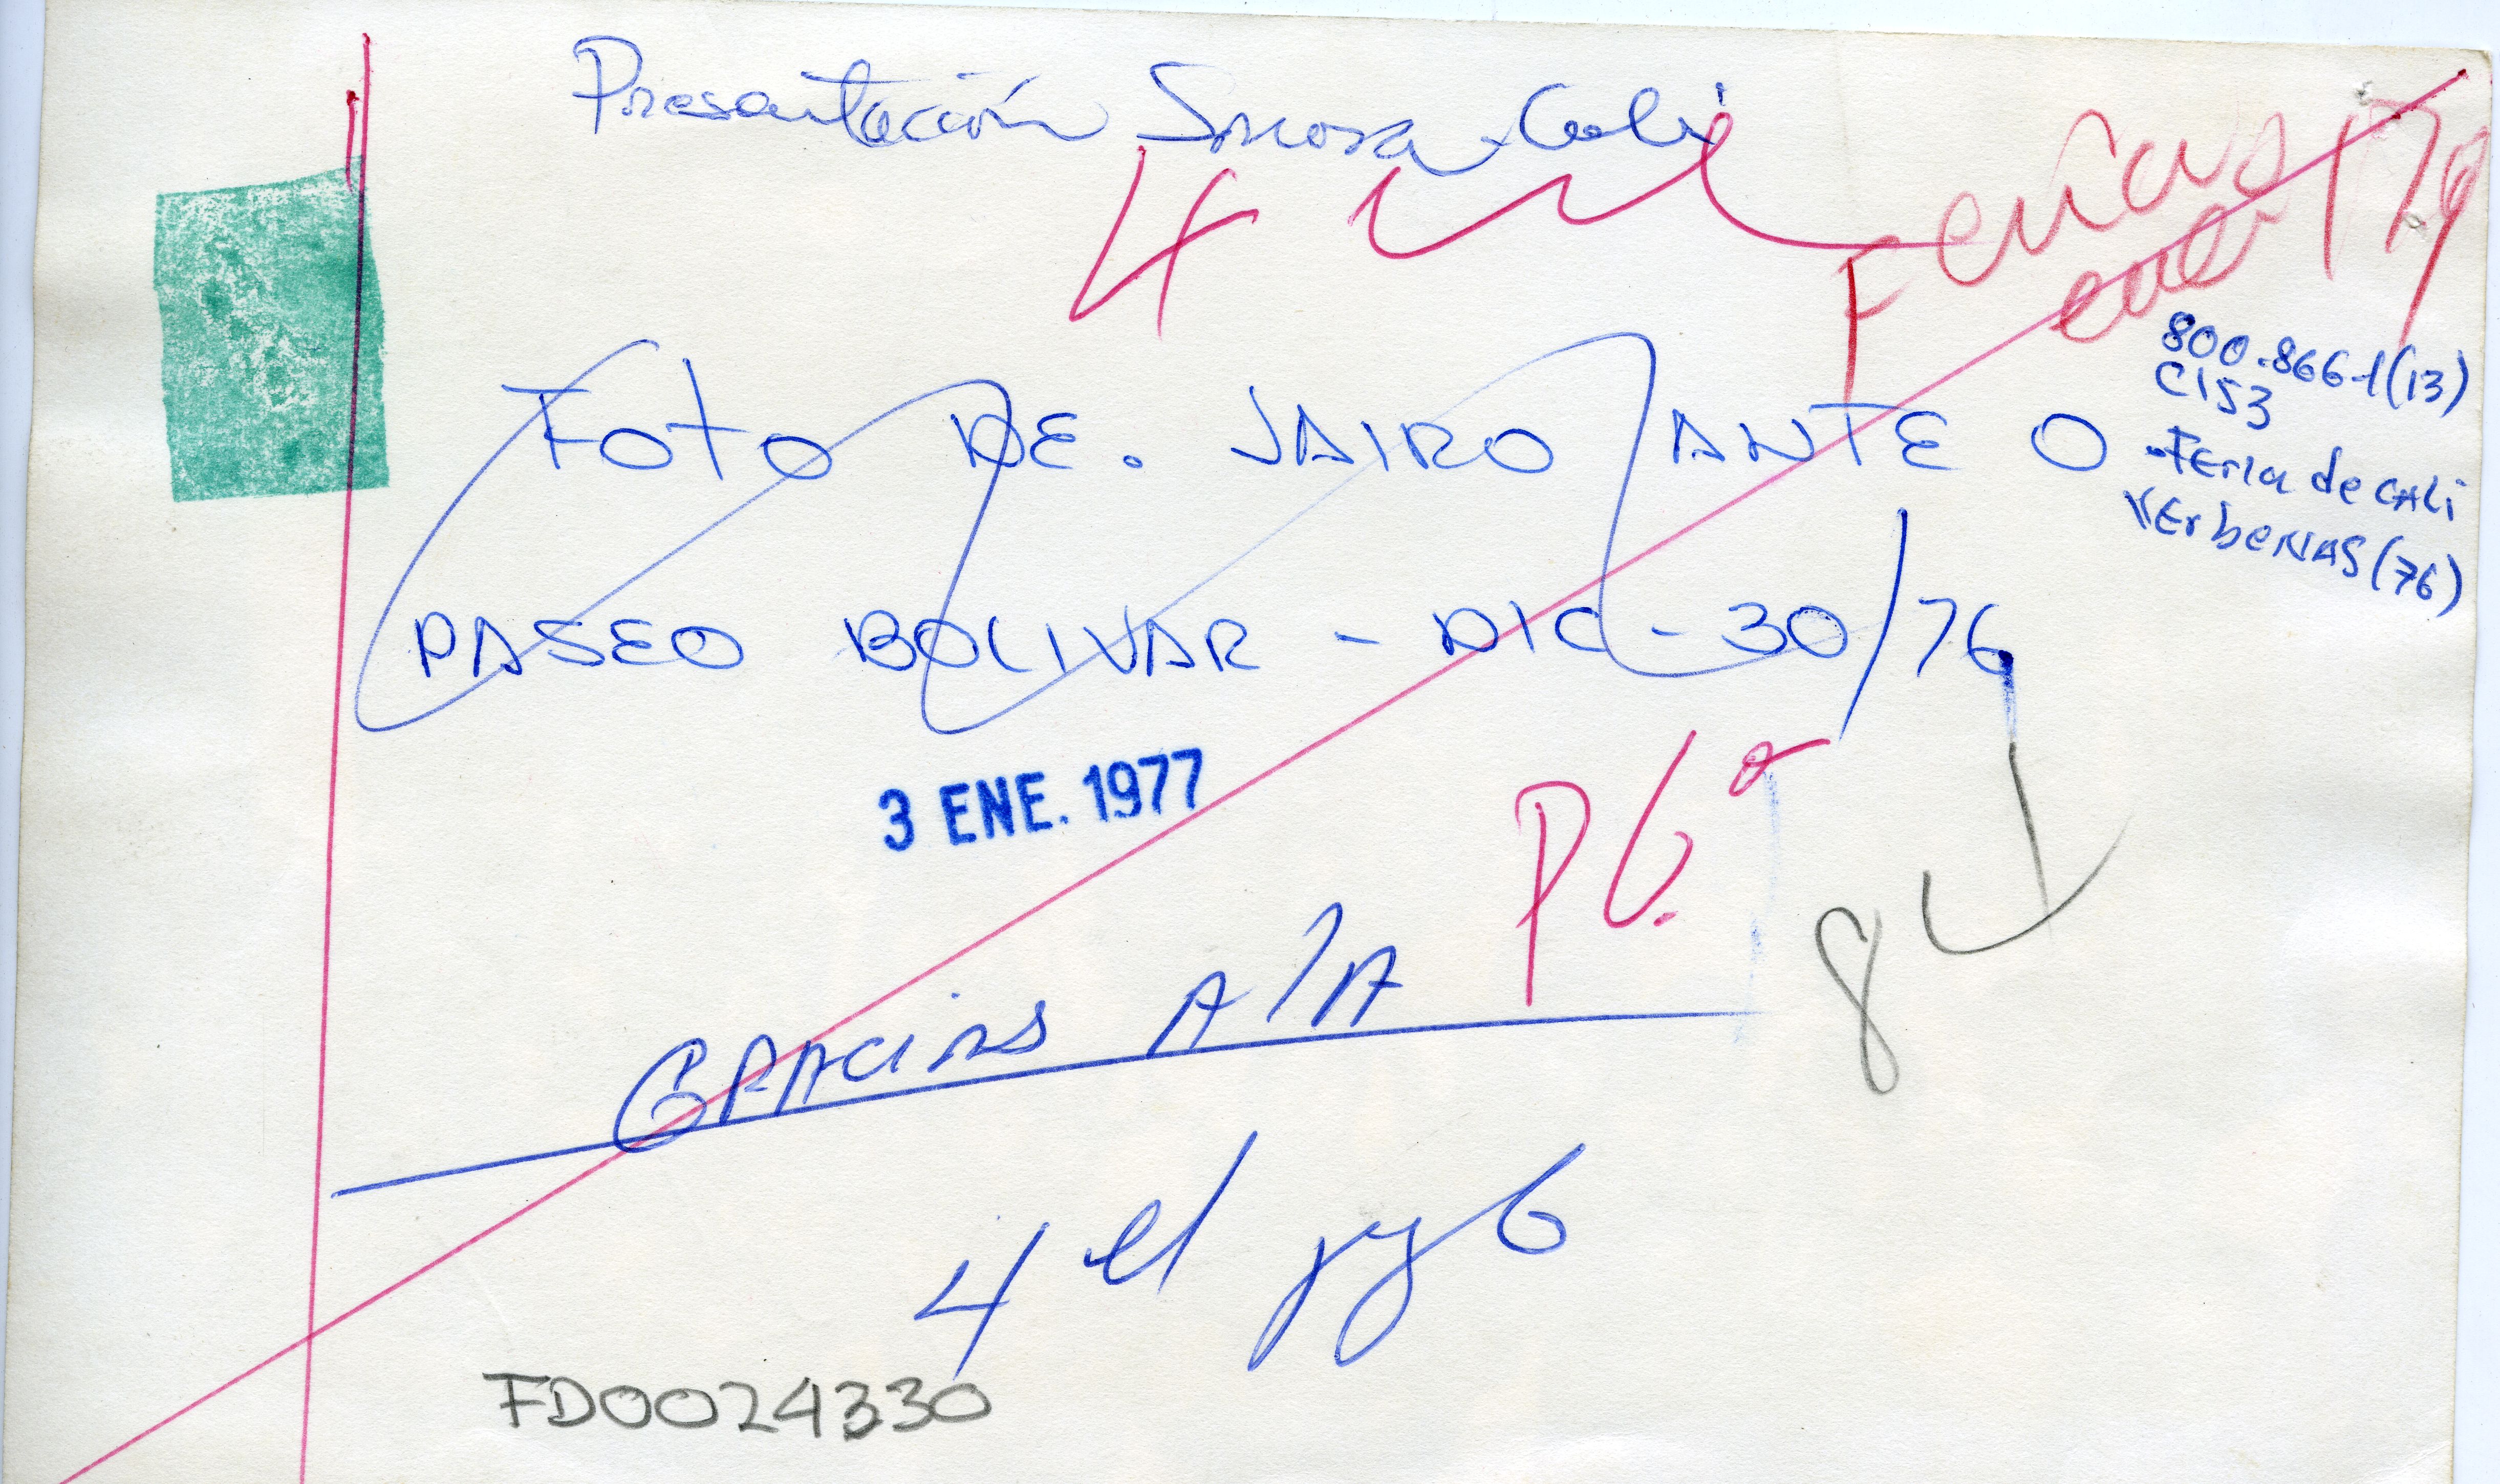 Presentación Sonora - Cali
4 col
Ferias 179
800-866-1(13)
C153
-Feria de CALI
VErbENAS (76)
FOTO DE. JAIRO ANTE O
PASEO BOLIVAR - DIC - 30/76
3 ENE. 1977
P6.a
8
GRACIAS A/A
4 el pg 6
FD0024330